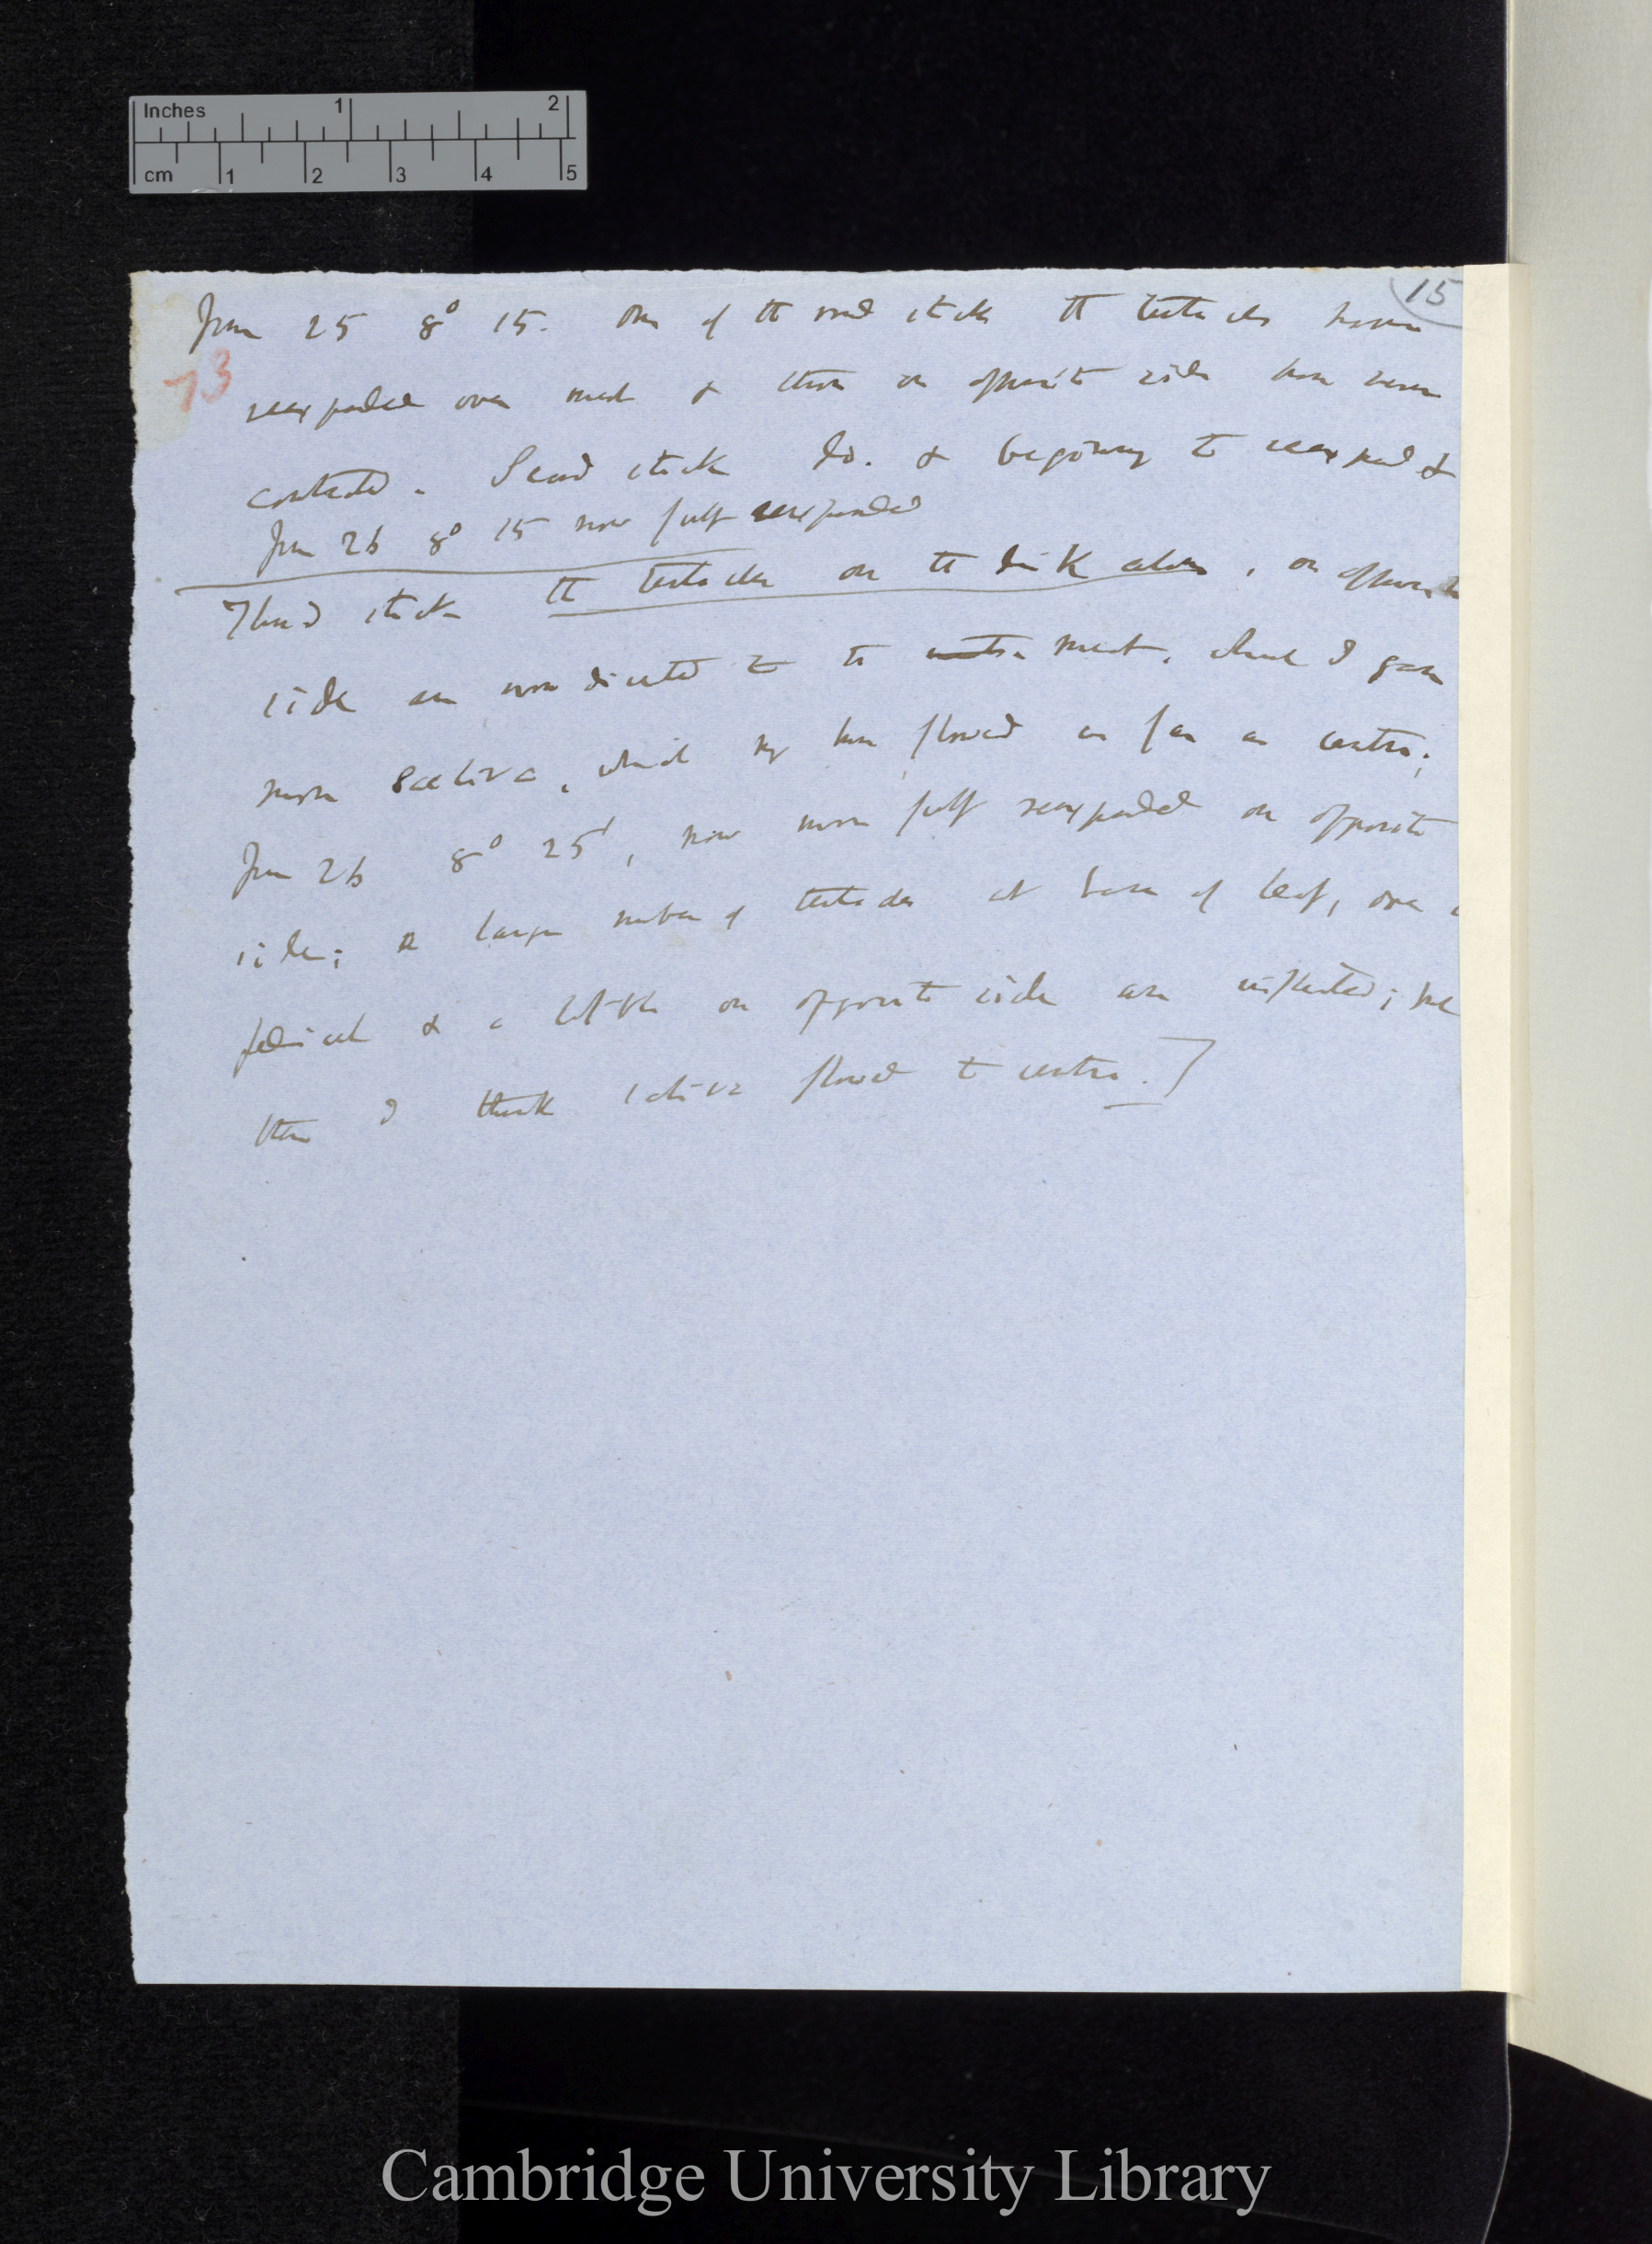 Inches 1 2
cm 1 2 3 4 5
15
June 25 8° 15. One of the meat sticks the tentacles have
73
reexpanded over meat & those on opposite side have never
contracted. Second stick do. & beginning to reexpand &
June 26 8° 15 now fully reexpanded
Third stick the tentacles on the disk alone, on opposite
side are now directed to the centre meat, where I gave
more saliva, which may have flowed as far as centre;
June 26 8° 25', now more fully reexpanded on opposite
side; a large number of tentacles at base of leaf, over
pedicel & a little on opposite side are inflected;
then I think saliva flowed to centre.]
Cambridge University Library